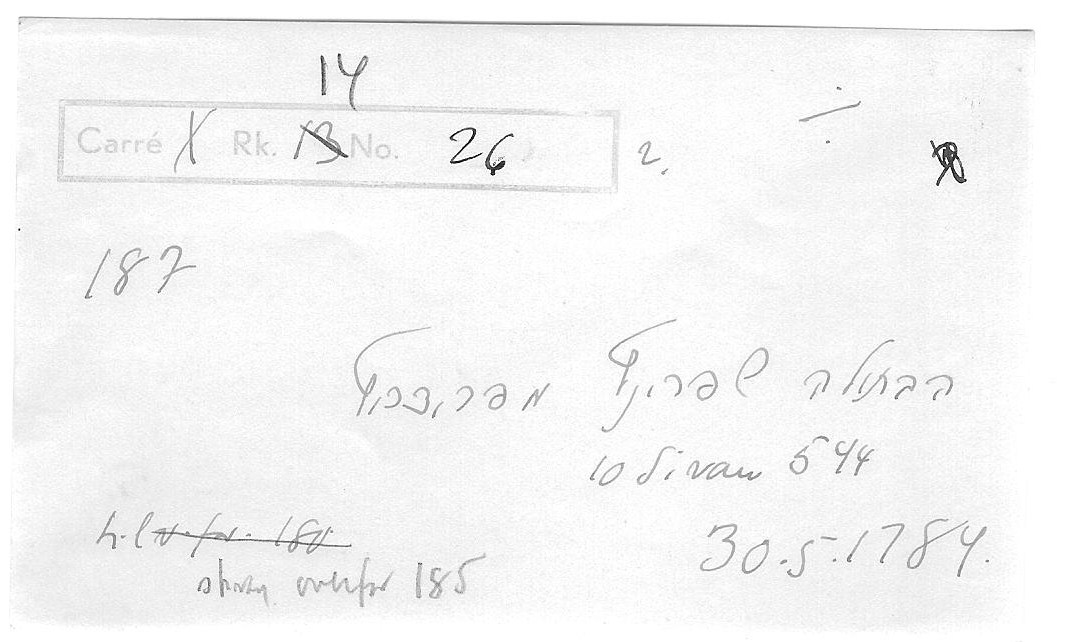 14
Carré X Rk. 13 No. 26 2.
187
הבתולה שפרינץ
10 Sivan 544
30.5.1784.
185